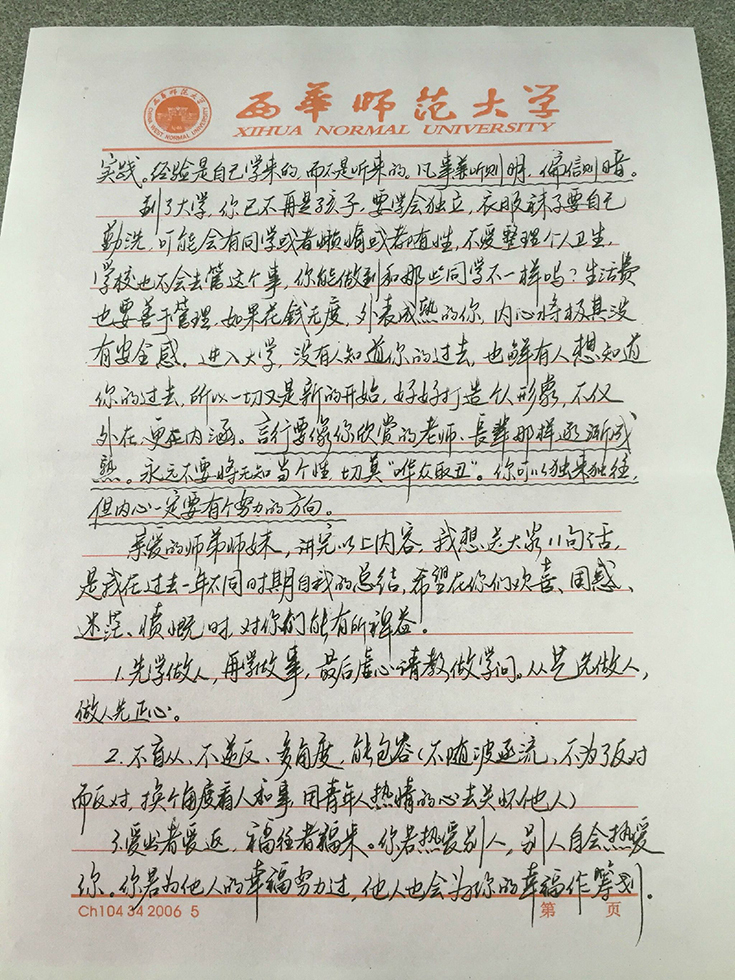 西華师范大学
XIHUA NORMAL UNIVERSITY
实践。经验是自己学来的,而不是听来的。凡事兼听则明,偏信则暗。
到了大学,你已不再是孩子,要学会独立,衣服袜子要自己
勤洗,可能会有同学或者懒惰或者随性,不爱整理个人卫生,
学校也不会去管这个事,你能做到和那些同学不一样吗?生活费
也要善于管理,如果花錢无度,外表成熟的你,内心将极其没
有安全感。进入大学,没有人知道你的过去,也鲜有人想知道
你的过去,所以一切又是新的开始,好好打造个人形象,不仅
外在,更在内涵。言行要像你欣赏的老师、長辈那样逐渐成
熟。永远不要将无知当个性,切莫“哗众取丑”。你可以独来独往,
但内心一定要有个努力的方向。
亲爱的师弟师妹,讲完以上内容,我想送大家11句话,
是我在过去一年不同时期自我的总结,希望在你们欢喜、困惑、
迷茫、愤慨时,对你们能有所裨益。
1.先学做人,再学做事,最后虚心请教做学问。从艺先做人,
做人先正心。
2.不盲从、不逆反、多角度,能包容(不随波逐流、不为了反对
而反对,换个角度看人和事,用青年人热情的心去关怀他人)
3.爱出者爱返,福往者福来。你若热爱别人,别人自会热爱
你。你若为他人的幸福努力过,他人也会为你的幸福作筹划。
Ch104 34 2006 5
第 页